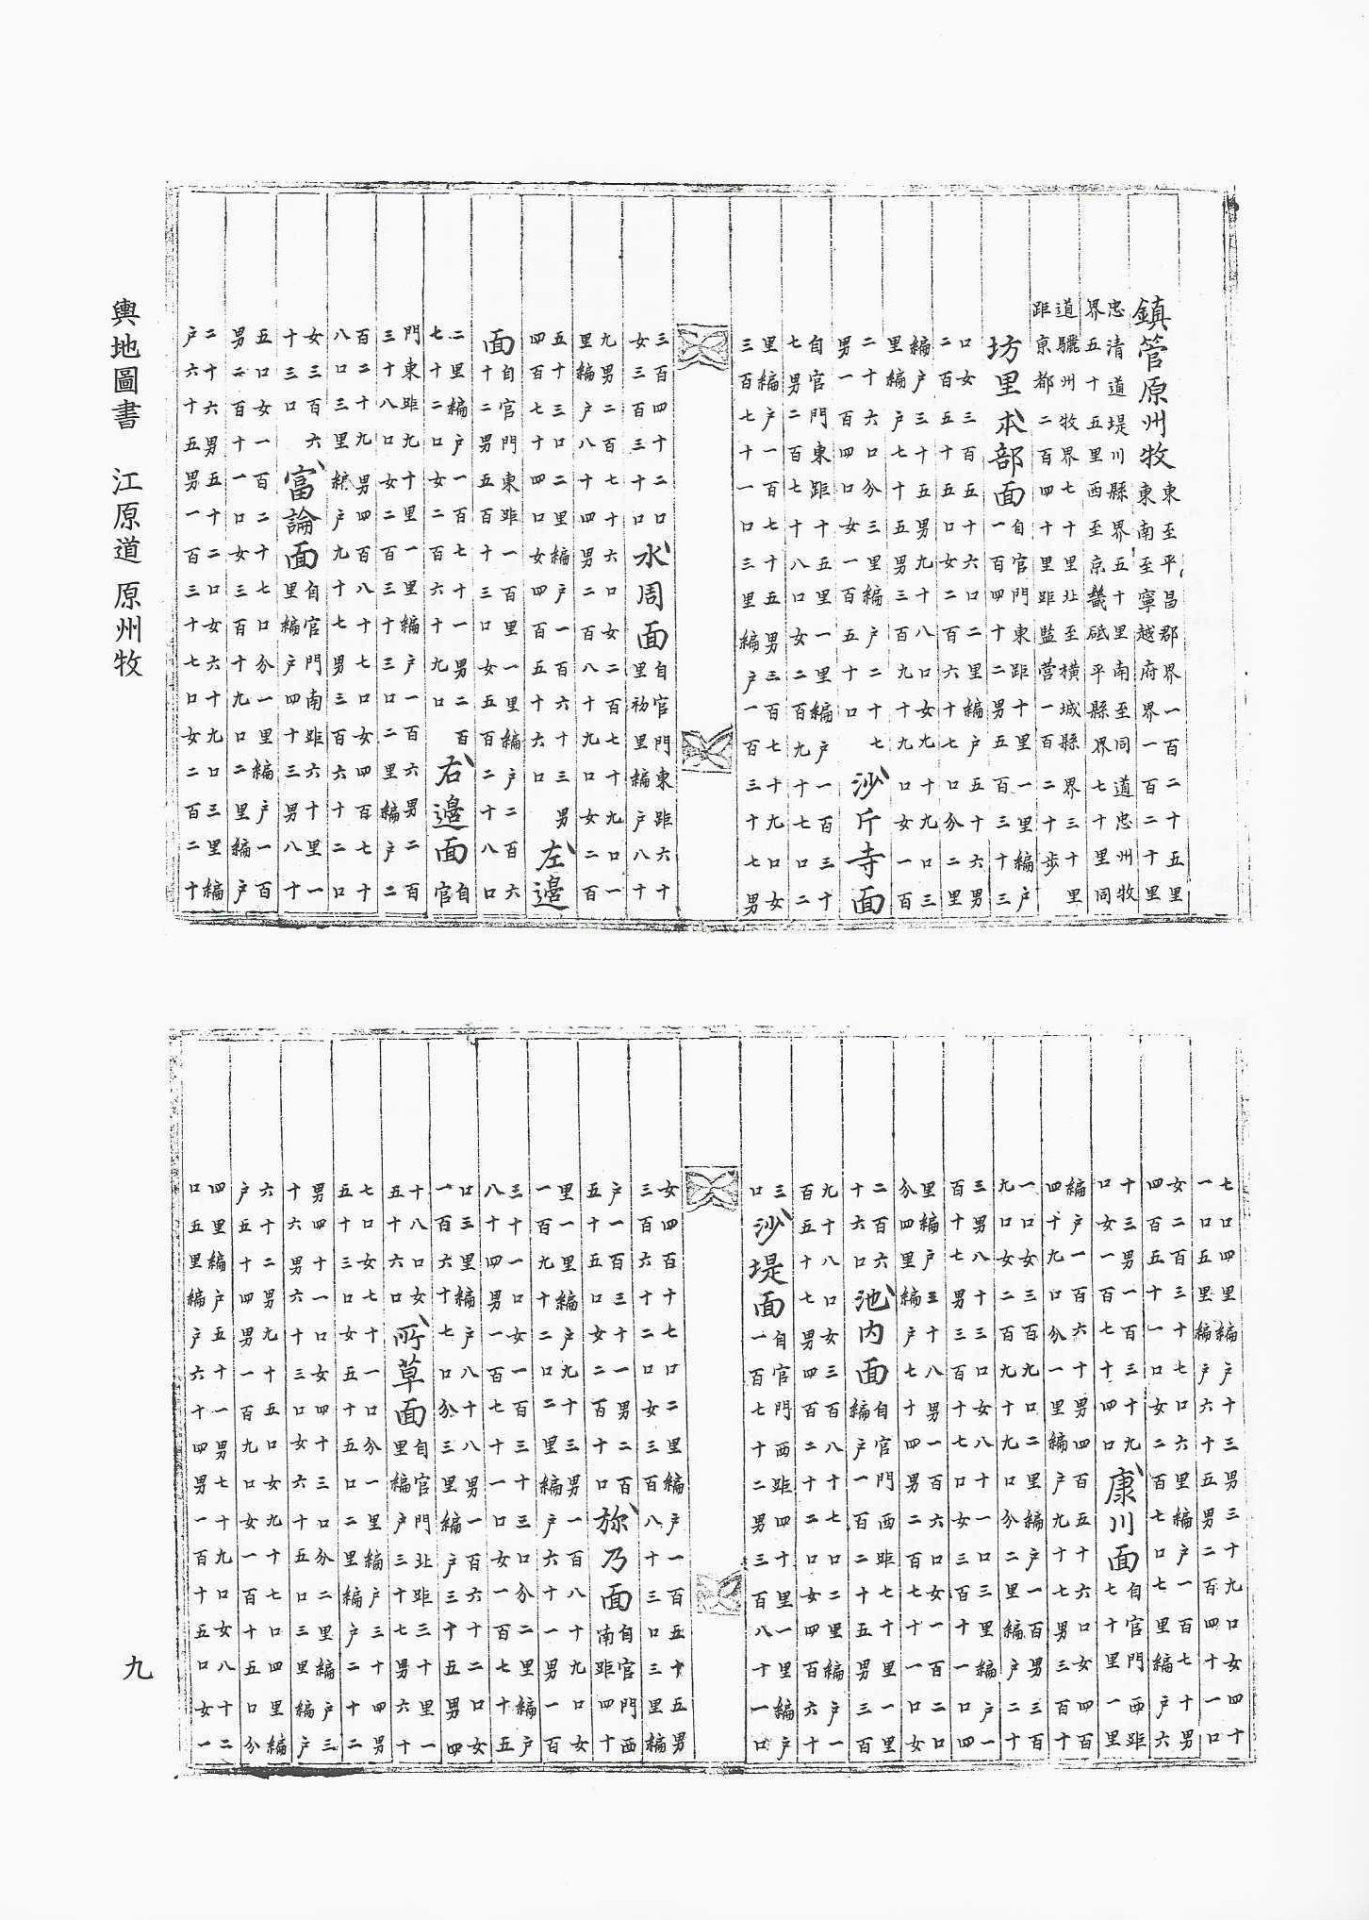 鎮管原州牧東至平昌郡界一百二十五里
東南至寧越府界一百二十里
忠清道堤川縣界五十里南至同道忠州牧
界五十五里西至京畿砥平縣界七十里同
道驪州牧界七十里北至橫城縣界三十里
距京都二百四十里距監營一百二十步
坊里本部面自官門東距十里一里編戶
一百四十二男五百三十三
口女三百五十六口二里編戶五十六男
二百五十五口女二百六十七口分二里
編戶三十五男九十八口女九十九口三
里編戶七十五男三百九十九口女一百
二十六口分三里編戶二十七
男一百四口女一百五十口沙斤寺面
自官門東距十五里一里編戶一百三十
七男二百七十八口女二百九十七口二
里編戶一百七十五男三百七十九口女
三百七十一口三里編戶一百三十七男
三百四十二口
女三百三十口水周面自官門東距六十
里初里編戶八十
九男二百七十六口女二百七十九口一
里編戶八十四男二百八十九口女二百
五十三口二里編戶一百六十三男
四百七十四口女四百五十六口左邊
面自官門東距一百里一里編戶二百六
十二男五百十三口女五百二十八口
二里編戶一百七十一男二百
七十二口女二百六十九口右邊面自
官
門東距九十里一里編戶一百六男二百
三十八口女二百三十三口二里編戶二
百二十九男四百八十七口女四百七十
八口三里編戶九十七男三百六十二口
女三百六
十三口富論面自官門南距六十里一
里編戶四十三男八十
五口女一百二十七口分一里編戶一百
男二百十一口女三百十九口二里編戶
二十六男五十二口女六十九口三里編
戶六十五男一百三十七口女二百二十
七口四里編戶十三男三十九口女四十
一口五里編戶六十五男二百四十一口
女二百三十七口六里編戶一百七十男
四百五十一口女二百七口七里編戶六
十三男一百三十九
口女一百七十四口康川面自官門西距
七十里一里
編戶一百六十男四百五十六口女四百
四十九口分一里編戶九十七男三百十
一口女三百九口二里編戶一百男三百
九口女二百九十九口分二里編戶二十
三男八十三口女八十一口三里編戶一
百十七男三百十七口女三百十一口四
里編戶三十八男一百六口女一百二口
分四里編戶七十四男二百七十一口女
二百六
十六口池內面自官門西距七十里一里
編戶一百二十五男三百
九十八口女三百八十七口二里編戶一
百五十七男四百二十二口女四百六十
三
口沙堤面自官門西距四十里一里編戶
一百七十二男三百八十一口
女四百十七口二里編戶一百五十五男
三百六十二口女三百八十三口三里編
戶一百三十一男二百
五十五口女二百十口弥乃面自官門西
南距四十
里一里編戶九十三男一百八十九口女
一百九十二口二里編戶六十一男一百
三十一口女一百三十三口分二里編戶
八十四男一百七十一口女一百七十五
口三里編戶八十八男一百六十二口女
一百六十七口分三里編戶三十五男四
十八口女
五十六口所草面自官門北距三十里一
里編戶三十七男六十
七口女七十一口分一里編戶三十四男
五十三口女五十五口二里編戶二十二
男四十一口女四十三口分二里編戶三
十六男六十三口女六十五口三里編戶
六十二男九十五口女九十七口四里編
戶五十四男一百九口女一百十五口分
四里編戶五十一男七十九口女八十二
口五里編戶六十四男一百十五口女一
輿地圖書 江原道 原州牧
九